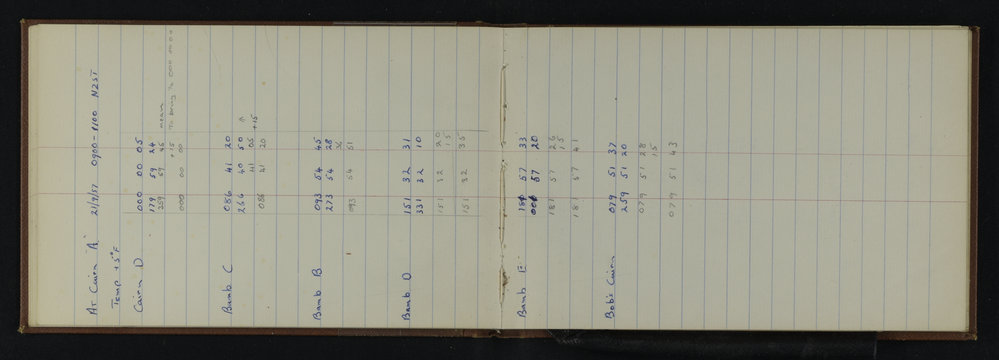 At Cairn "A" 21/9/57 0900-1100 NZST
Temp +5°F
Cairn D 000 00 05
179 59 24
359 59 45 mean
+15 To bring to 000 00 00
000 00 00
Bamb C 086 41 20
266 40 50
41 05 +15
086 41 20
Bamb B 093 54 45
273 54 28
093 54 51
Bamb D 151 32 31
331 32 10
151 32 20
15
151 32 35
Bamb E 181 57 33
001 57 20
181 57 26
15
181 57 41
Bob's Cairn 079 51 37
259 51 20
079 51 28
15
079 51 43